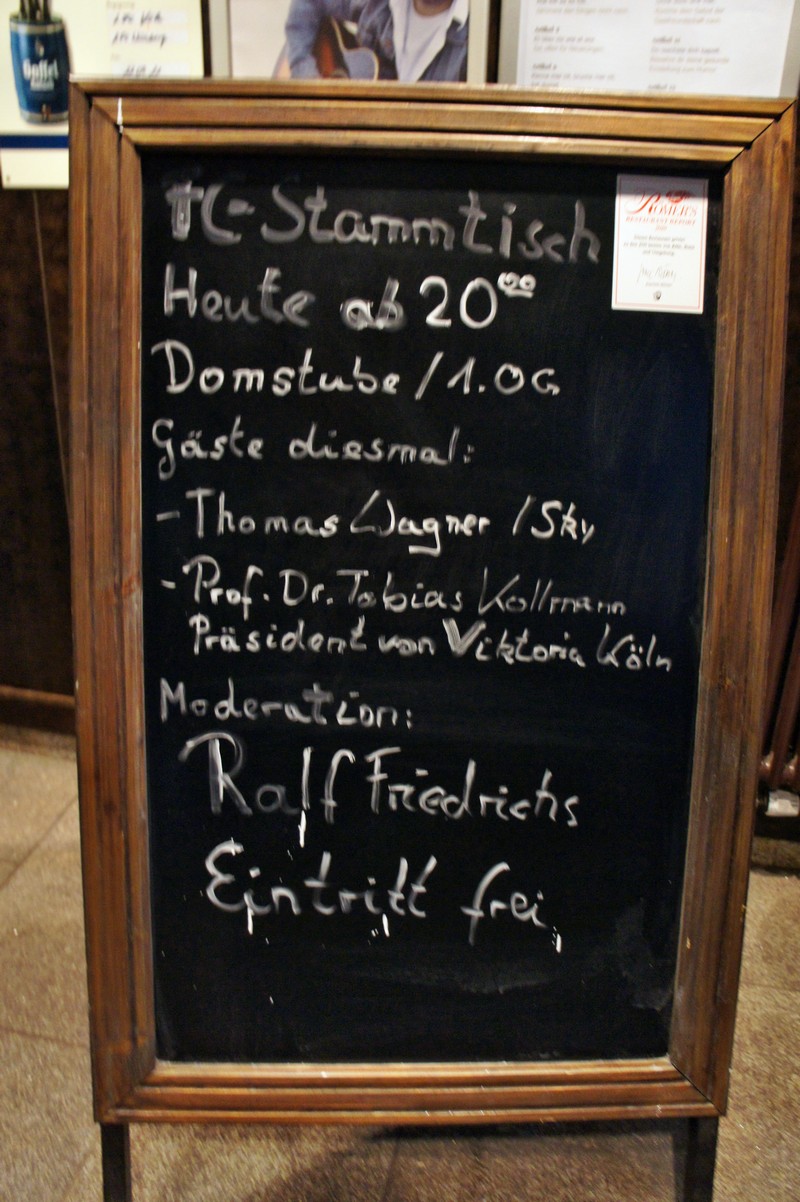 Gaffel
FC-Stammtisch
Heute ab 20⁰⁰
Domstube / 1. OG
Gäste diesmal:
- Thomas Wagner / Sky
- Prof. Dr. Tobias Kollmann
Präsident von Viktoria Köln
Moderation:
Ralf Friedrichs
Eintritt frei